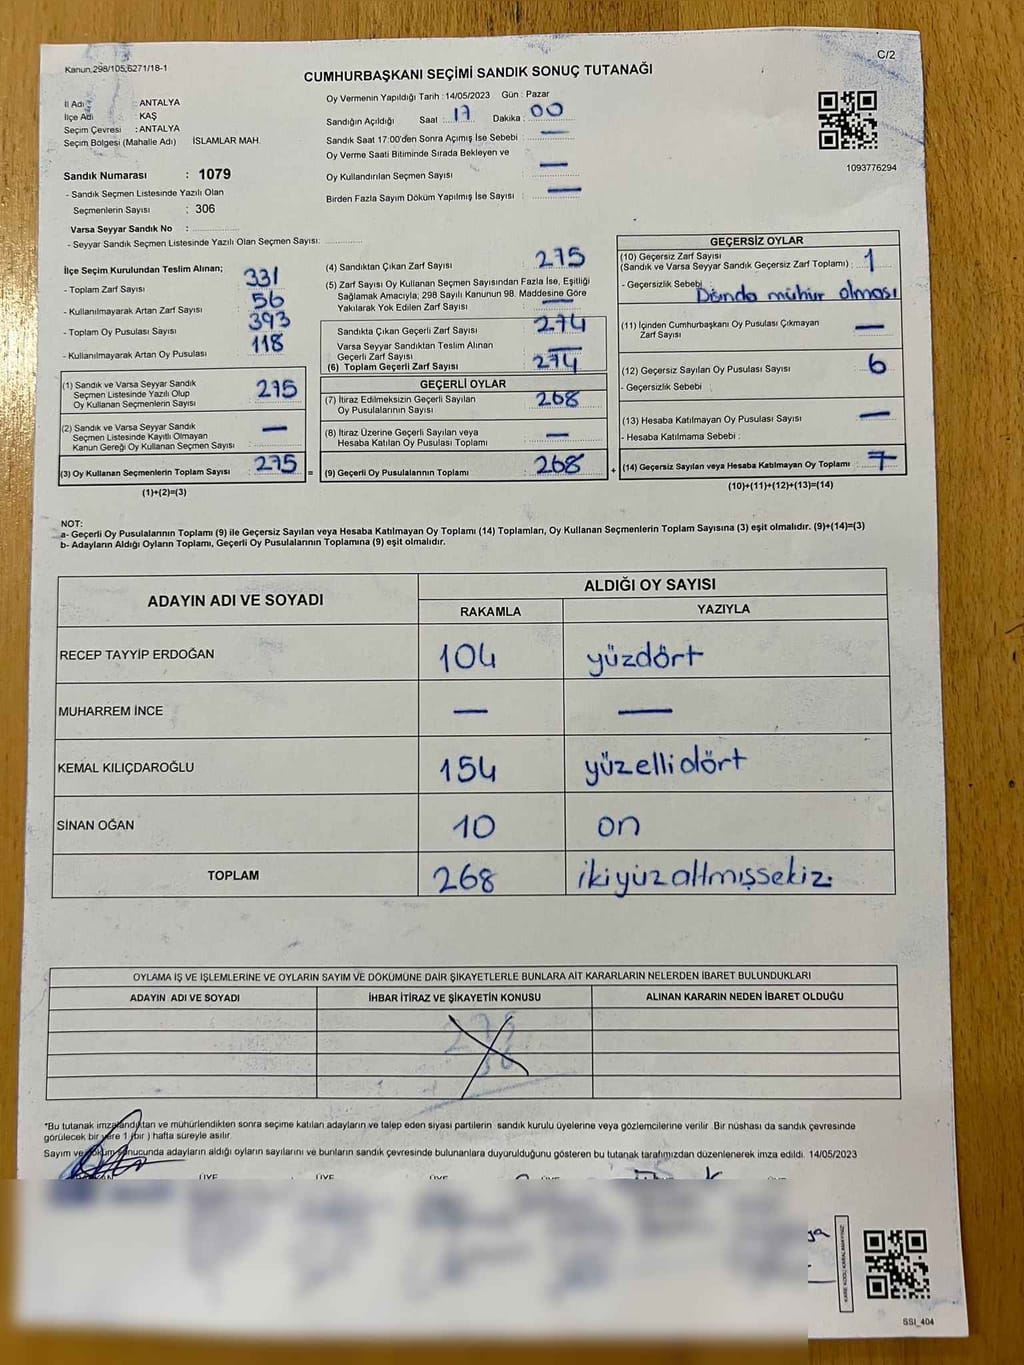 Kanun,298/105,6271/18-1
C/2
CUMHURBAŞKANI SEÇİMİ SANDIK SONUÇ TUTANAĞI
İl Adı : ANTALYA
İlçe Adı : KAŞ
Seçim Çevresi : ANTALYA
Seçim Bölgesi (Mahalle Adı) İSLAMLAR MAH.
Sandık Numarası : 1079
- Sandık Seçmen Listesinde Yazılı Olan
Seçmenlerin Sayısı : 306
Varsa Seyyar Sandık No :
- Seyyar Sandık Seçmen Listesinde Yazılı Olan Seçmen Sayısı:
Oy Vermenin Yapıldığı Tarih : 14/05/2023 Gün : Pazar
Sandığın Açıldığı Saat : 17 Dakika : 00
Sandık Saat 17:00'den Sonra Açımış İse Sebebi : —
Oy Verme Saati Bitiminde Sırada Bekleyen ve
Oy Kullandırılan Seçmen Sayısı : —
Birden Fazla Sayım Döküm Yapılmış İse Sayısı : —
1093776294
İlçe Seçim Kurulundan Teslim Alınan;
- Toplam Zarf Sayısı : 331
- Kullanılmayarak Artan Zarf Sayısı : 56
- Toplam Oy Pusulası Sayısı : 393
- Kullanılmayarak Artan Oy Pusulası : 118
(1) Sandık ve Varsa Seyyar Sandık
Seçmen Listesinde Yazılı Olup
Oy Kullanan Seçmenlerin Sayısı : 275
(2) Sandık ve Varsa Seyyar Sandık
Seçmen Listesinde Kayıtlı Olmayan
Kanun Gereği Oy Kullanan Seçmen Sayısı : —
(3) Oy Kullanan Seçmenlerin Toplam Sayısı : 275 =
(1)+(2)=(3)
(4) Sandıktan Çıkan Zarf Sayısı : 275
(5) Zarf Sayısı Oy Kullanan Seçmen Sayısından Fazla İse, Eşitliği
Sağlamak Amacıyla; 298 Sayılı Kanunun 98. Maddesine Göre
Yakılarak Yok Edilen Zarf Sayısı : —
Sandıkta Çıkan Geçerli Zarf Sayısı : 274
Varsa Seyyar Sandıktan Teslim Alınan
Geçerli Zarf Sayısı : —
(6) Toplam Geçerli Zarf Sayısı : 274
GEÇERLİ OYLAR
(7) İtiraz Edilmeksizin Geçerli Sayılan
Oy Pusulalarının Sayısı : 268
(8) İtiraz Üzerine Geçerli Sayılan veya
Hesaba Katılan Oy Pusulası Toplamı : —
(9) Geçerli Oy Pusulalarının Toplamı : 268 +
GEÇERSİZ OYLAR
(10) Geçersiz Zarf Sayısı
(Sandık ve Varsa Seyyar Sandık Geçersiz Zarf Toplamı) : 1
- Geçersizlik Sebebi : Dışında mühür olması
(11) İçinden Cumhurbaşkanı Oy Pusulası Çıkmayan
Zarf Sayısı : —
(12) Geçersiz Sayılan Oy Pusulası Sayısı : 6
- Geçersizlik Sebebi :
(13) Hesaba Katılmayan Oy Pusulası Sayısı : —
- Hesaba Katılmama Sebebi :
(14) Geçersiz Sayılan veya Hesaba Katılmayan Oy Toplamı : 7
(10)+(11)+(12)+(13)=(14)
NOT:
a- Geçerli Oy Pusulalarının Toplamı (9) ile Geçersiz Sayılan veya Hesaba Katılmayan Oy Toplamı (14) Toplamları, Oy Kullanan Seçmenlerin Toplam Sayısına (3) eşit olmalıdır. (9)+(14)=(3)
b- Adayların Aldığı Oyların Toplamı, Geçerli Oy Pusulalarının Toplamına (9) eşit olmalıdır.
ADAYIN ADI VE SOYADI
ALDIĞI OY SAYISI
RAKAMLA YAZIYLA
RECEP TAYYİP ERDOĞAN 104 yüzdört
MUHARREM İNCE — —
KEMAL KILIÇDAROĞLU 154 yüzellidört
SİNAN OĞAN 10 on
TOPLAM 268 ikiyüzaltmışsekiz.
OYLAMA İŞ VE İŞLEMLERİNE VE OYLARIN SAYIM VE DÖKÜMÜNE DAİR ŞİKAYETLERLE BUNLARA AİT KARARLARIN NELERDEN İBARET BULUNDUKLARI
ADAYIN ADI VE SOYADI İHBAR İTİRAZ VE ŞİKAYETİN KONUSU ALINAN KARARIN NEDEN İBARET OLDUĞU
*Bu tutanak imzalandıktan ve mühürlendikten sonra seçime katılan adayların ve talep eden siyasi partilerin sandık kurulu üyelerine veya gözlemcilerine verilir .Bir nüshası da sandık çevresinde
görülecek bir yere 1 (bir ) hafta süreyle asılır.
Sayım ve döküm sonucunda adayların aldığı oyların sayılarını ve bunların sandık çevresinde bulunanlara duyurulduğunu gösteren bu tutanak tarafımızdan düzenlenerek imza edildi. 14/05/2023
ÜYE ÜYE ÜYE
SSI_404